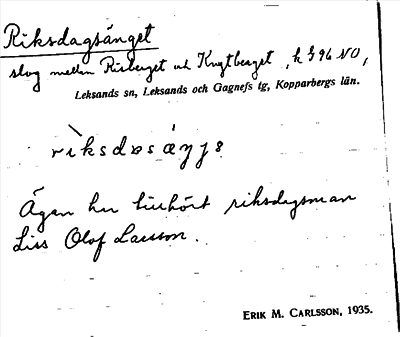 Riksdagsänget
slog mellan Risberget och Krygtberget, k 396 NO,
Leksands sn, Leksands och Gagnefs tg, Kopparbergs län.
rìksdɒsáŋjɜ
Ägan har tillhört riksdagsman
Liss Olof Larsson.
ERIK M. CARLSSON, 1935.